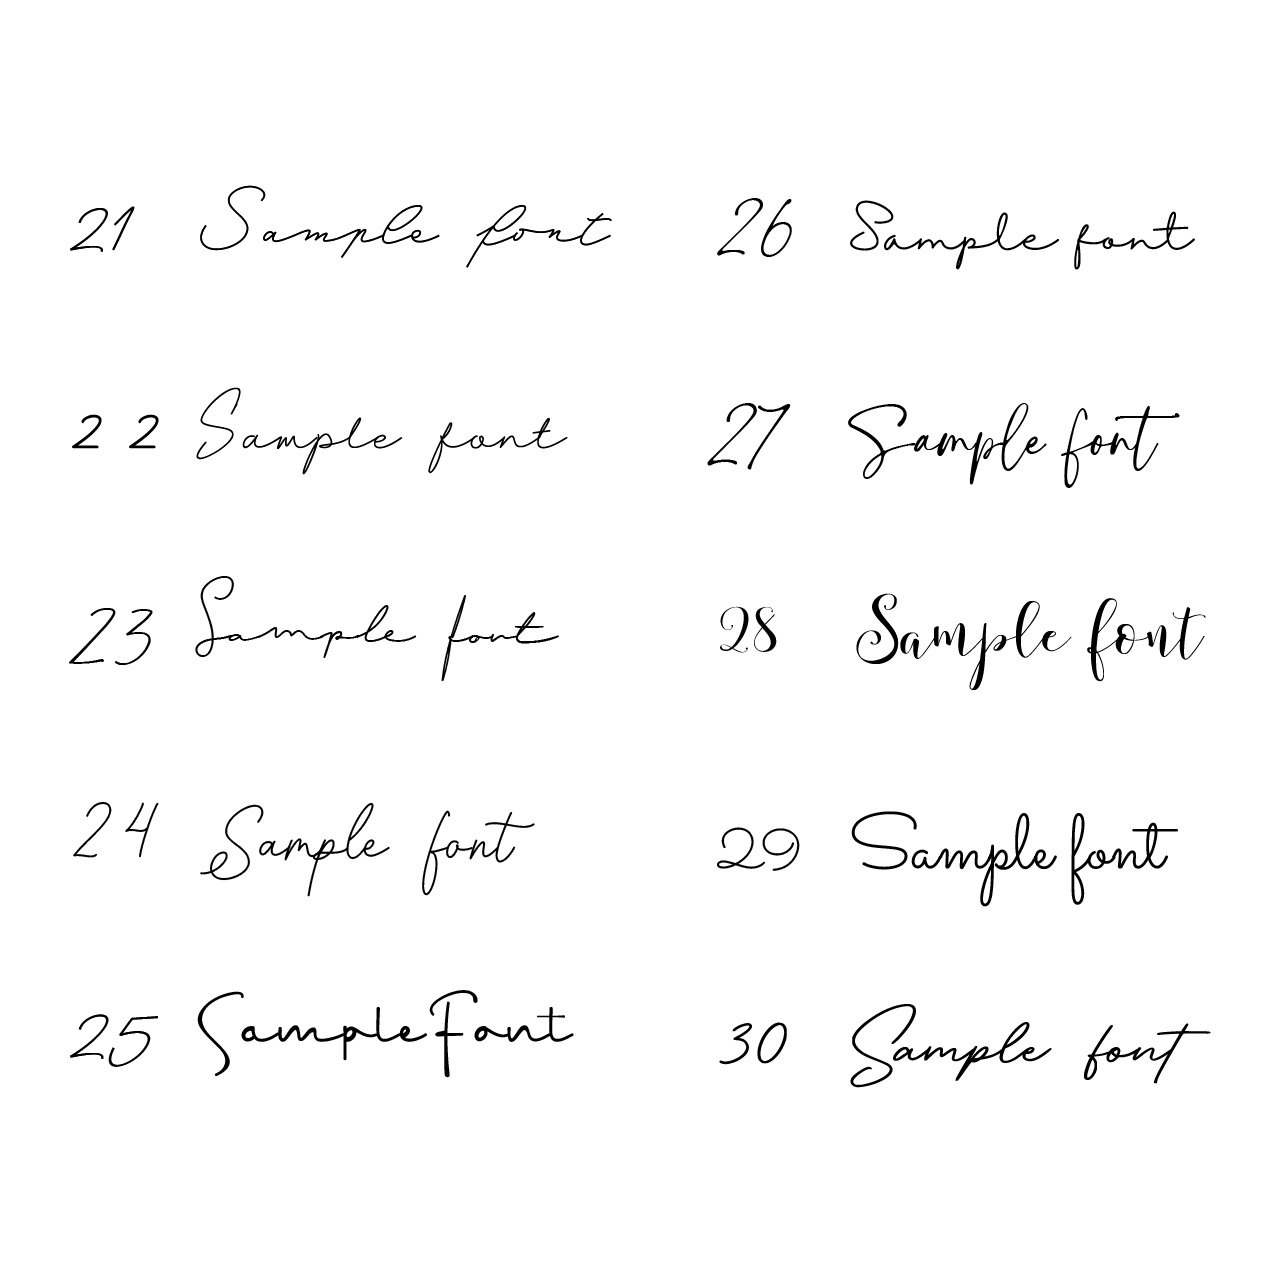 21 Sample font
22 Sample font
23 Sample font
24 Sample font
25 Sample Font
26 Sample font
27 Sample font
28 Sample font
29 Sample font
30 Sample font